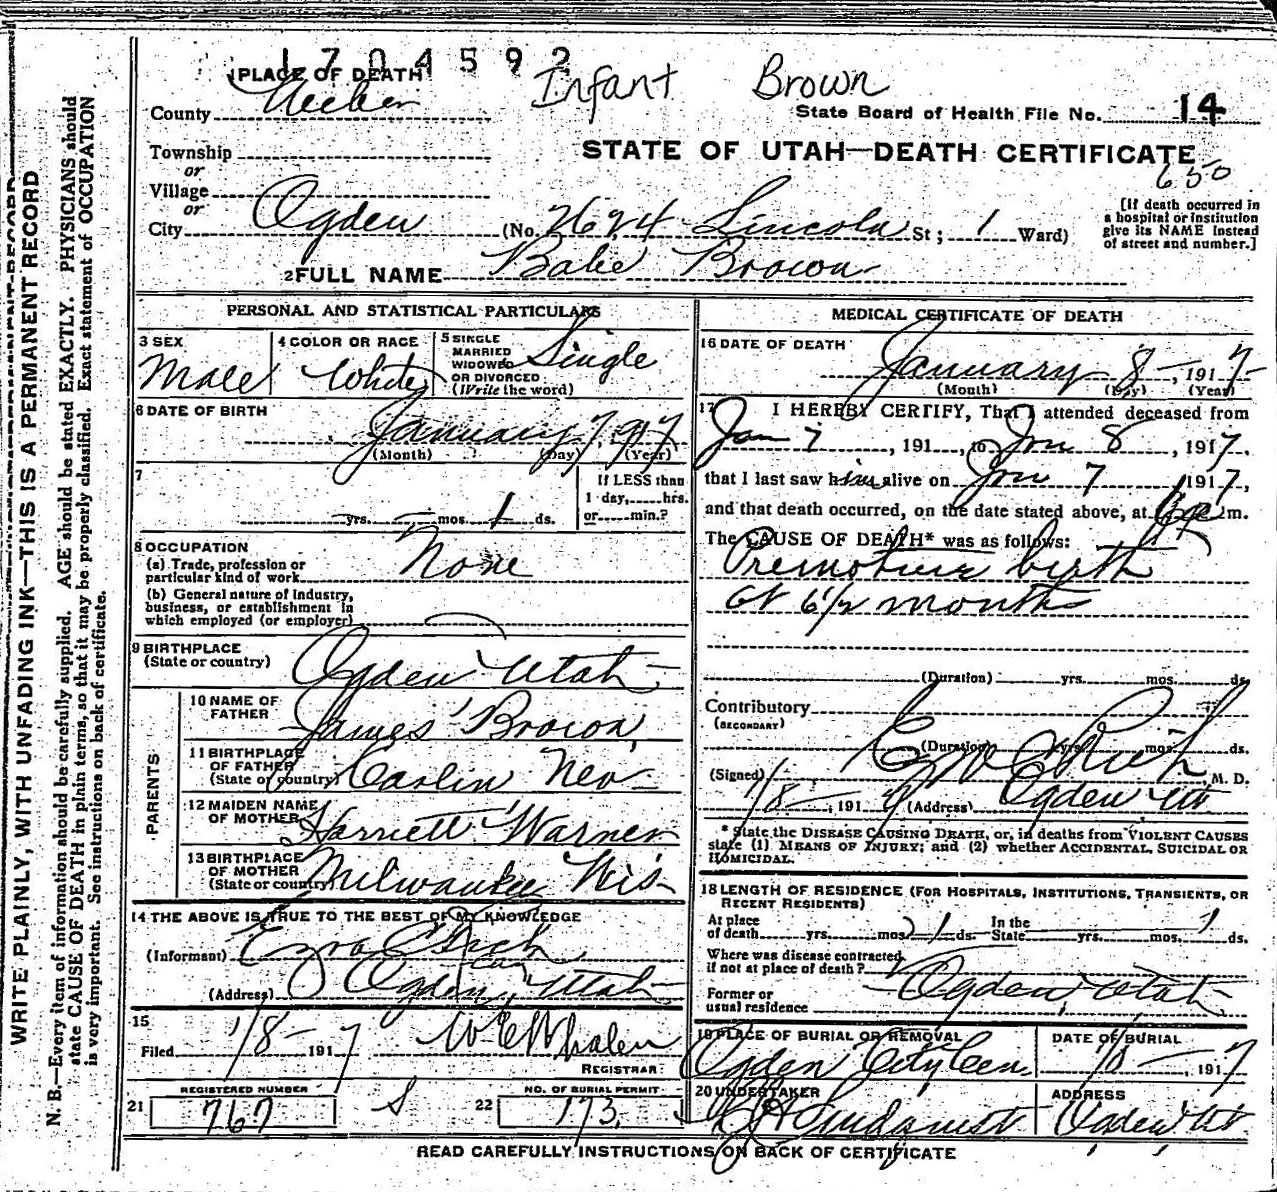 1704592
Infant Brown
1 PLACE OF DEATH
County Weber
State Board of Health File No. 14
Township
or
Village
or
City Ogden (No. 2624 Lincoln St; 1 Ward)
STATE OF UTAH—DEATH CERTIFICATE
650
[If death occurred in
a hospital or institution
give its NAME instead
of street and number.]
2 FULL NAME Babe Brown
PERSONAL AND STATISTICAL PARTICULARS
3 SEX
Male
4 COLOR OR RACE
White
5 SINGLE
MARRIED
WIDOWED
OR DIVORCED
(Write the word)
Single
6 DATE OF BIRTH
January 7 1917
(Month) (Day) (Year)
7
yrs. mos. 1 ds.
If LESS than
1 day, hrs.
or min.?
8 OCCUPATION
(a) Trade, profession or
particular kind of work None
(b) General nature of industry,
business, or establishment in
which employed (or employer)
9 BIRTHPLACE
(State or country) Ogden Utah
PARENTS
10 NAME OF
FATHER James Brown
11 BIRTHPLACE
OF FATHER
(State or country) Carlin Nev
12 MAIDEN NAME
OF MOTHER Harriett Warner
13 BIRTHPLACE
OF MOTHER
(State or country) Milwaukee Wis
14 THE ABOVE IS TRUE TO THE BEST OF MY KNOWLEDGE
(Informant) Ezra C Rich
(Address) Ogden, Utah
15
Filed 1/8 - 1917 W E Whalen
REGISTRAR
REGISTERED NUMBER
21 767
S
NO. OF BURIAL PERMIT
22 173
MEDICAL CERTIFICATE OF DEATH
16 DATE OF DEATH
January 8 - , 1917
(Month) (Day) (Year)
17 I HEREBY CERTIFY, That I attended deceased from
Jan 7, 191 , to Jan 8, 1917,
that I last saw him alive on Jan 7 1917,
and that death occurred, on the date stated above, at m.
The CAUSE OF DEATH* was as follows:
Premature birth
at 6 1/2 months
(Duration) yrs. mos. ds.
Contributory
(SECONDARY)
(Duration) yrs. mos. ds.
(Signed) Rich M. D.
1/8 - , 1917 (Address) Ogden Ut
* State the DISEASE CAUSING DEATH, or, in deaths from VIOLENT CAUSES
state (1) MEANS OF INJURY; and (2) whether ACCIDENTAL, SUICIDAL OR
HOMICIDAL.
18 LENGTH OF RESIDENCE (FOR HOSPITALS, INSTITUTIONS, TRANSIENTS, OR
RECENT RESIDENTS)
At place In the
of death yrs. mos. 1 ds. State yrs. mos. 1 ds.
Where was disease contracted,
if not at place of death?
Former or
usual residence Ogden, Utah
19 PLACE OF BURIAL OR REMOVAL
Ogden City Cem.
DATE OF BURIAL
1/8 - , 1917
20 UNDERTAKER
Lindquist
ADDRESS
Ogden Ut
READ CAREFULLY INSTRUCTIONS ON BACK OF CERTIFICATE
WRITE PLAINLY, WITH UNFADING INK—THIS IS A PERMANENT RECORD
N. B.—Every item of information should be carefully supplied. AGE should be stated EXACTLY. PHYSICIANS should
state CAUSE OF DEATH in plain terms, so that it may be properly classified. Exact statement of OCCUPATION
is very important. See instructions on back of certificate.